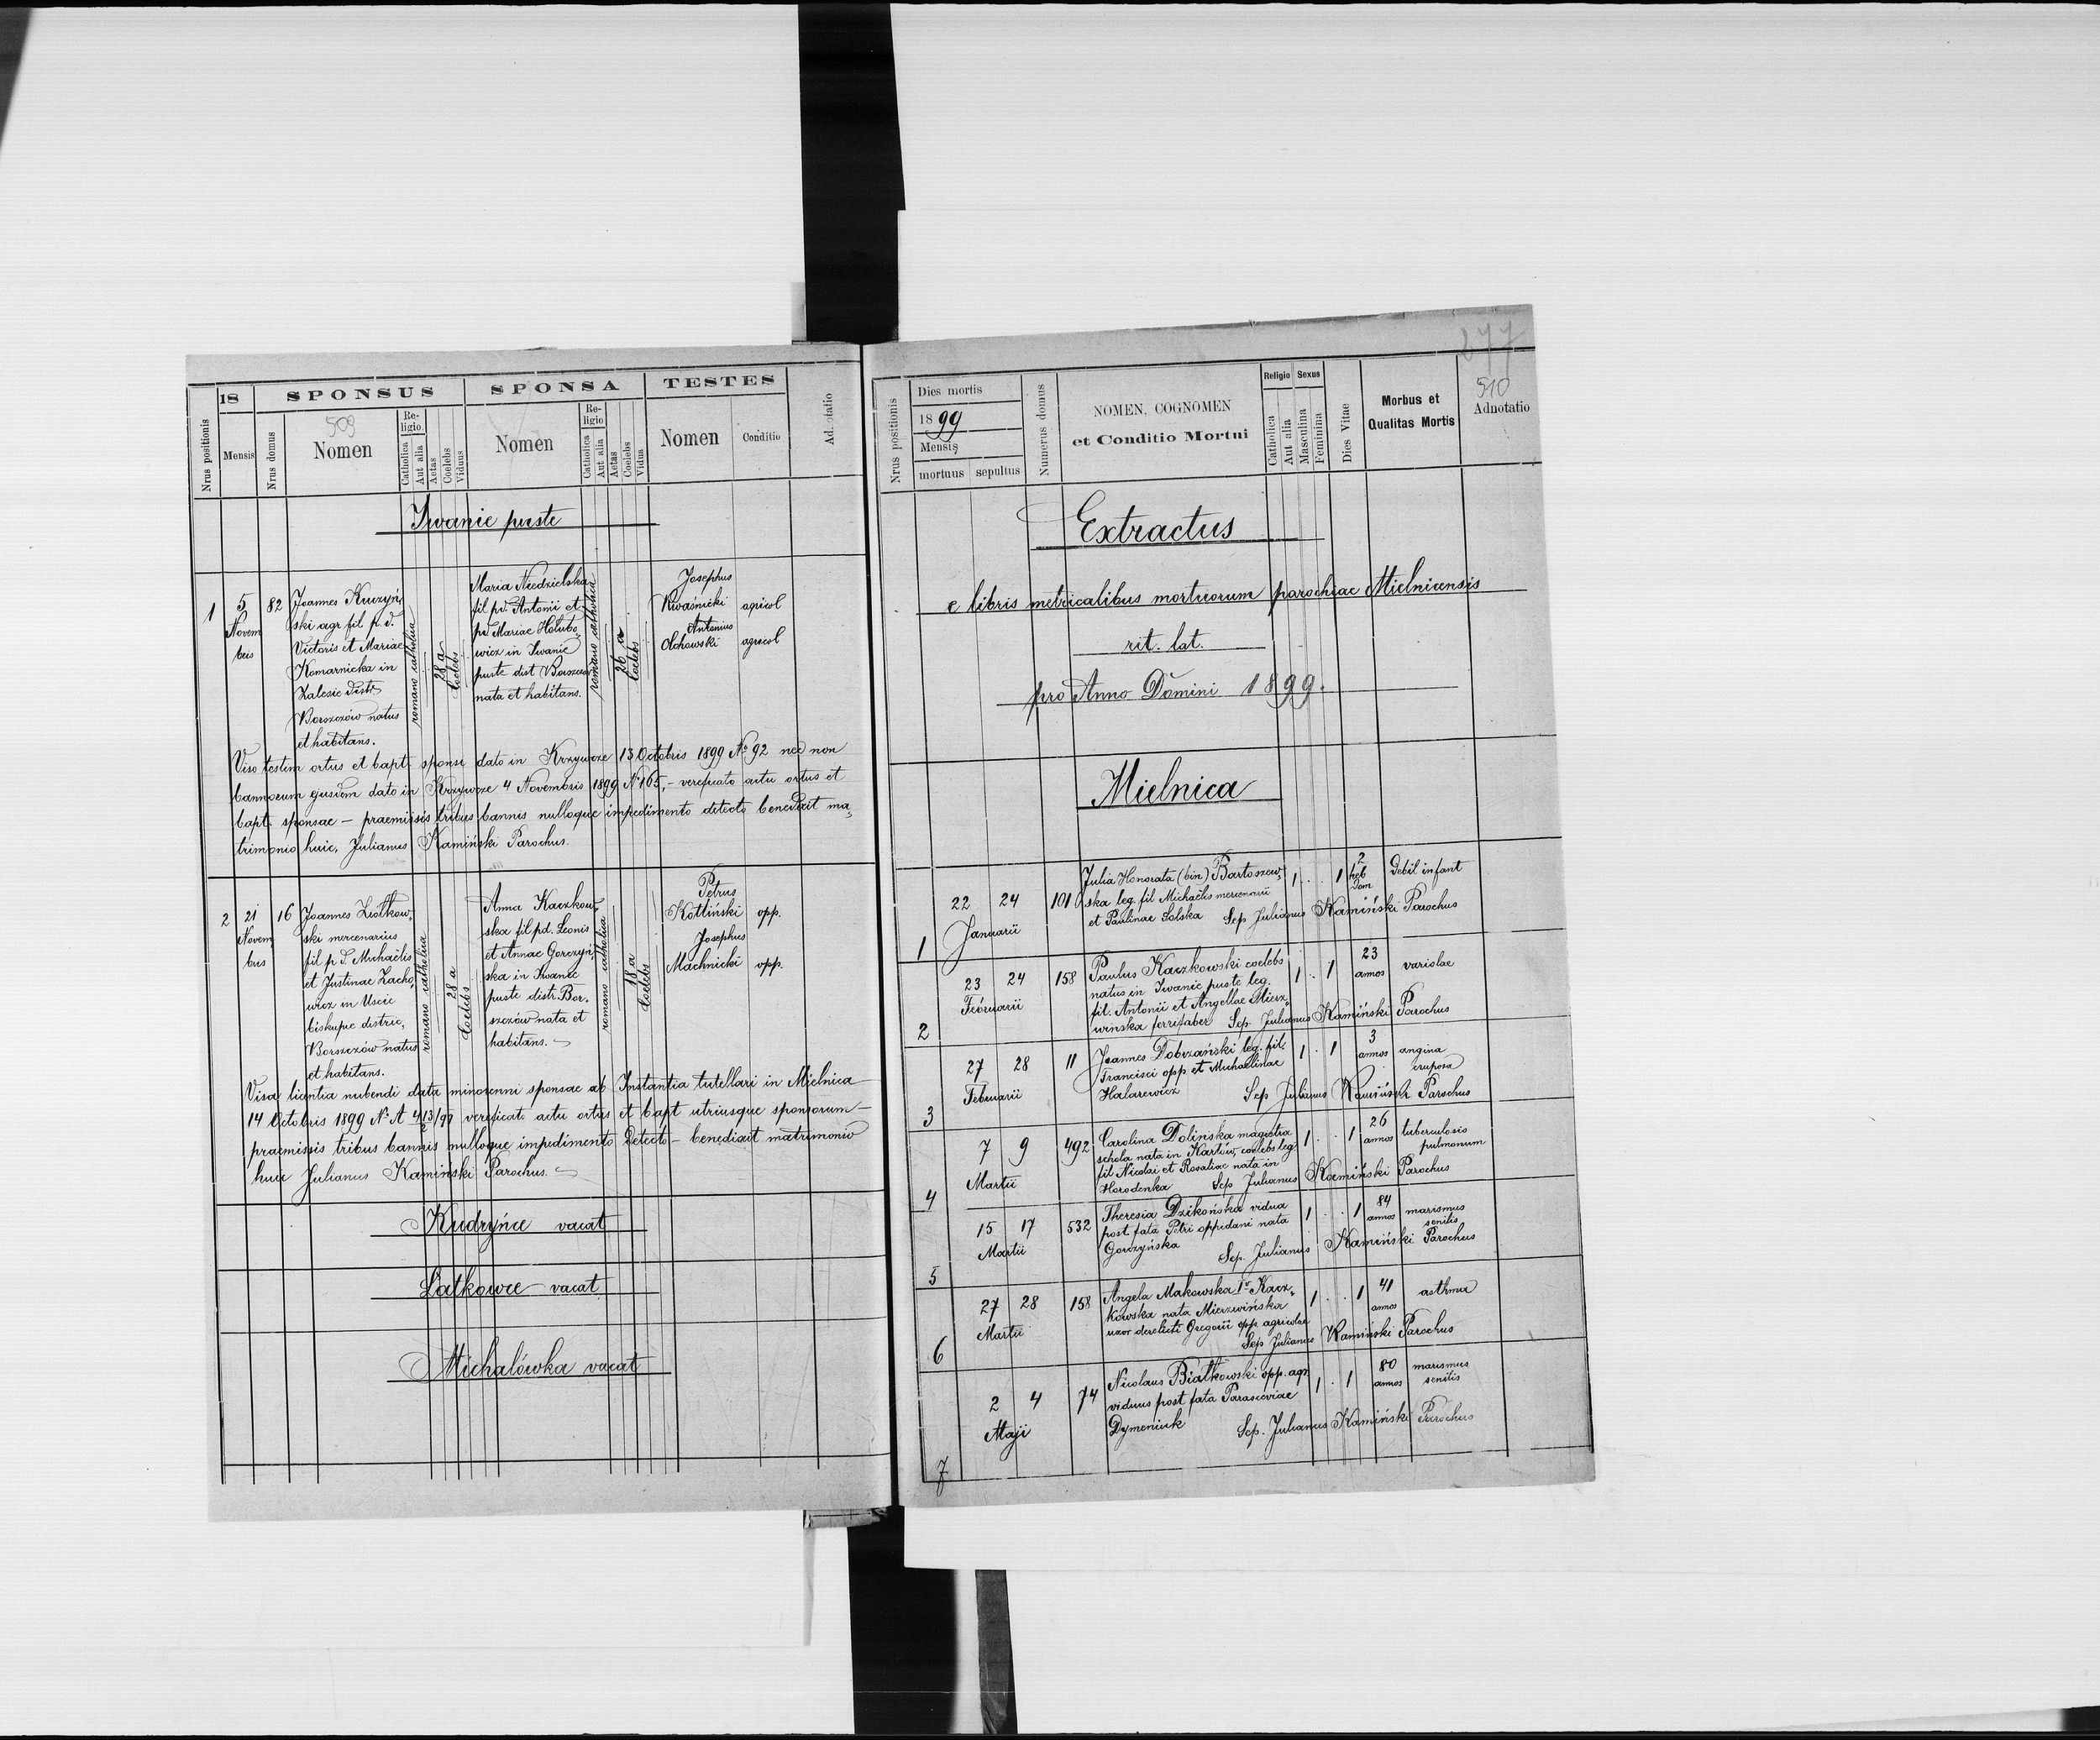 18
SPONSUS
SPONSA
TESTES
Nrus positionis
Mensis
Nrus domus
509
Nomen
Religio
Catholica
Aut alia
Aetas
Coelebs
Viduus
Nomen
Religio
Catholica
Aut alia
Aetas
Coelebs
Vidua
Nomen
Conditio
Adnotatio
Iwanie puste
1
5
Novem
bris
82
Joannes Kruczyń
ski agr fil p. d.
Victoris et Mariae
Komarnicka in
Zalesie distr
Borszczów natus
et habitans.
romano catholica
28 a
Coelebs
Maria Niedzielska
fil pd. Antonii et
pd Mariae Hołubo
wicz in Iwanie
puste dist Borszczów
nata et habitans.
romano catholica
26 a
Coelebs
Josephus
Kwaśnicki agricol
Antonius
Olchowski agricol
Viso testim ortus et bapt. sponsi dato in Krzywcze 13 Octobris 1899 No 92 nec non
bannorum ejusdem dato in Krzywcze 4 Novembris 1899 N 165, - verificato actu ortus et
bapt. sponsae - praemissis tribus bannis nulloque impedimento detecto benedixit ma
trimonio huic. Julianus Kamiński Parochus.
2
21
Novem
bris
16
Joannes Ziółkow
ski mercenarius
fil p d. Michaëlis
et Justinae Zacho
wicz in Uscie
biskupe distric,
Borszczów natus
et habitans.
romano catholica
28 a
Coelebs
Anna Kaczkow
ska fil pd. Leonis
et Annae Gorczyń
ska in Iwanie
puste distr. Bor-
szczów nata et
habitans.
romano catholica
18 a
Coelebs
Petrus
Kotliński opp.
Josephus
Machnicki opp.
Visa licentia nubendi data minorenni sponsae ab Instantia tutellari in Mielnica
14 Octobris 1899 No A verificato actu ortus et bapt utriusque sponsorum -
praemissis tribus bannis nulloque impedimento detecto - benedixit matrimonio
huic Julianus Kamiński Parochus.
Kudryńce vacat
Latkowce vacat
Michałówka vacat
277
510
Nrus positionis
Dies mortis
1899
Mensis
mortuus sepultus
Numerus domus
NOMEN, COGNOMEN
et Conditio Mortui
Religio
Catholica
Aut alia
Sexus
Masculina
Feminina
Dies Vitae
Morbus et
Qualitas Mortis
Adnotatio
Extractus
e libris metricalibus mortuorum parochiae Mielnicensis
rit. lat.
pro Anno Domini 1899.
Mielnica
1
22 24
Januarii
101
Julia Honorata (bin) Bartoszew
ska leg. fil Michaëlis mercenarii
et Paulinae Solska Sep Julianus Kamiński Parochus
1 . 1
2
heb
dom
Debil infant
2
23 24
Februarii
158
Paulus Kaczkowski coelebs
natus in Iwanie puste leg.
fil. Antonii et Angellae Mierz
winska ferrifaber Sep Julianus Kamiński Parochus
1 . 1
23
annos
variolae
3
27 28
Februarii
11
Joannes Dobrzański leg. fil.
Francisci opp et Michaelinae
Halarewicz Sep Julianus Kamiński Parochus
1 . 1
3
annos
angina
cruposa
4
7 9
Martii
492
Carolina Dolińska magistra
schola nata in Karlów, coelebs leg
fil Nicolai et Rosaliae nata in
Horodenka Sep Julianus Kamiński Parochus
1 . . 1
26
annos
tuberculosis
pulmonum
5
15 17
Martii
532
Theresia Dzikońska vidua
post fata Petri oppidani nata
Gorczyńska Sep. Julianus Kamiński Parochus
1 . . 1
84
annos
marismus
senilis
6
27 28
Martii
158
Angela Makowska Iv Kacz
kowska nata Mierzwińska
uxor derelicti Gregorii opp agricolae
Sep Julianus Kamiński Parochus
1 . . 1
41
annos
asthma
7
2 4
Maji
74
Nicolaus Białkowski opp. agr.
viduus post fata Parasceviae
Dymeniuk Sep. Julianus Kamiński Parochus
1 . 1
80
annos
marismus
senilis